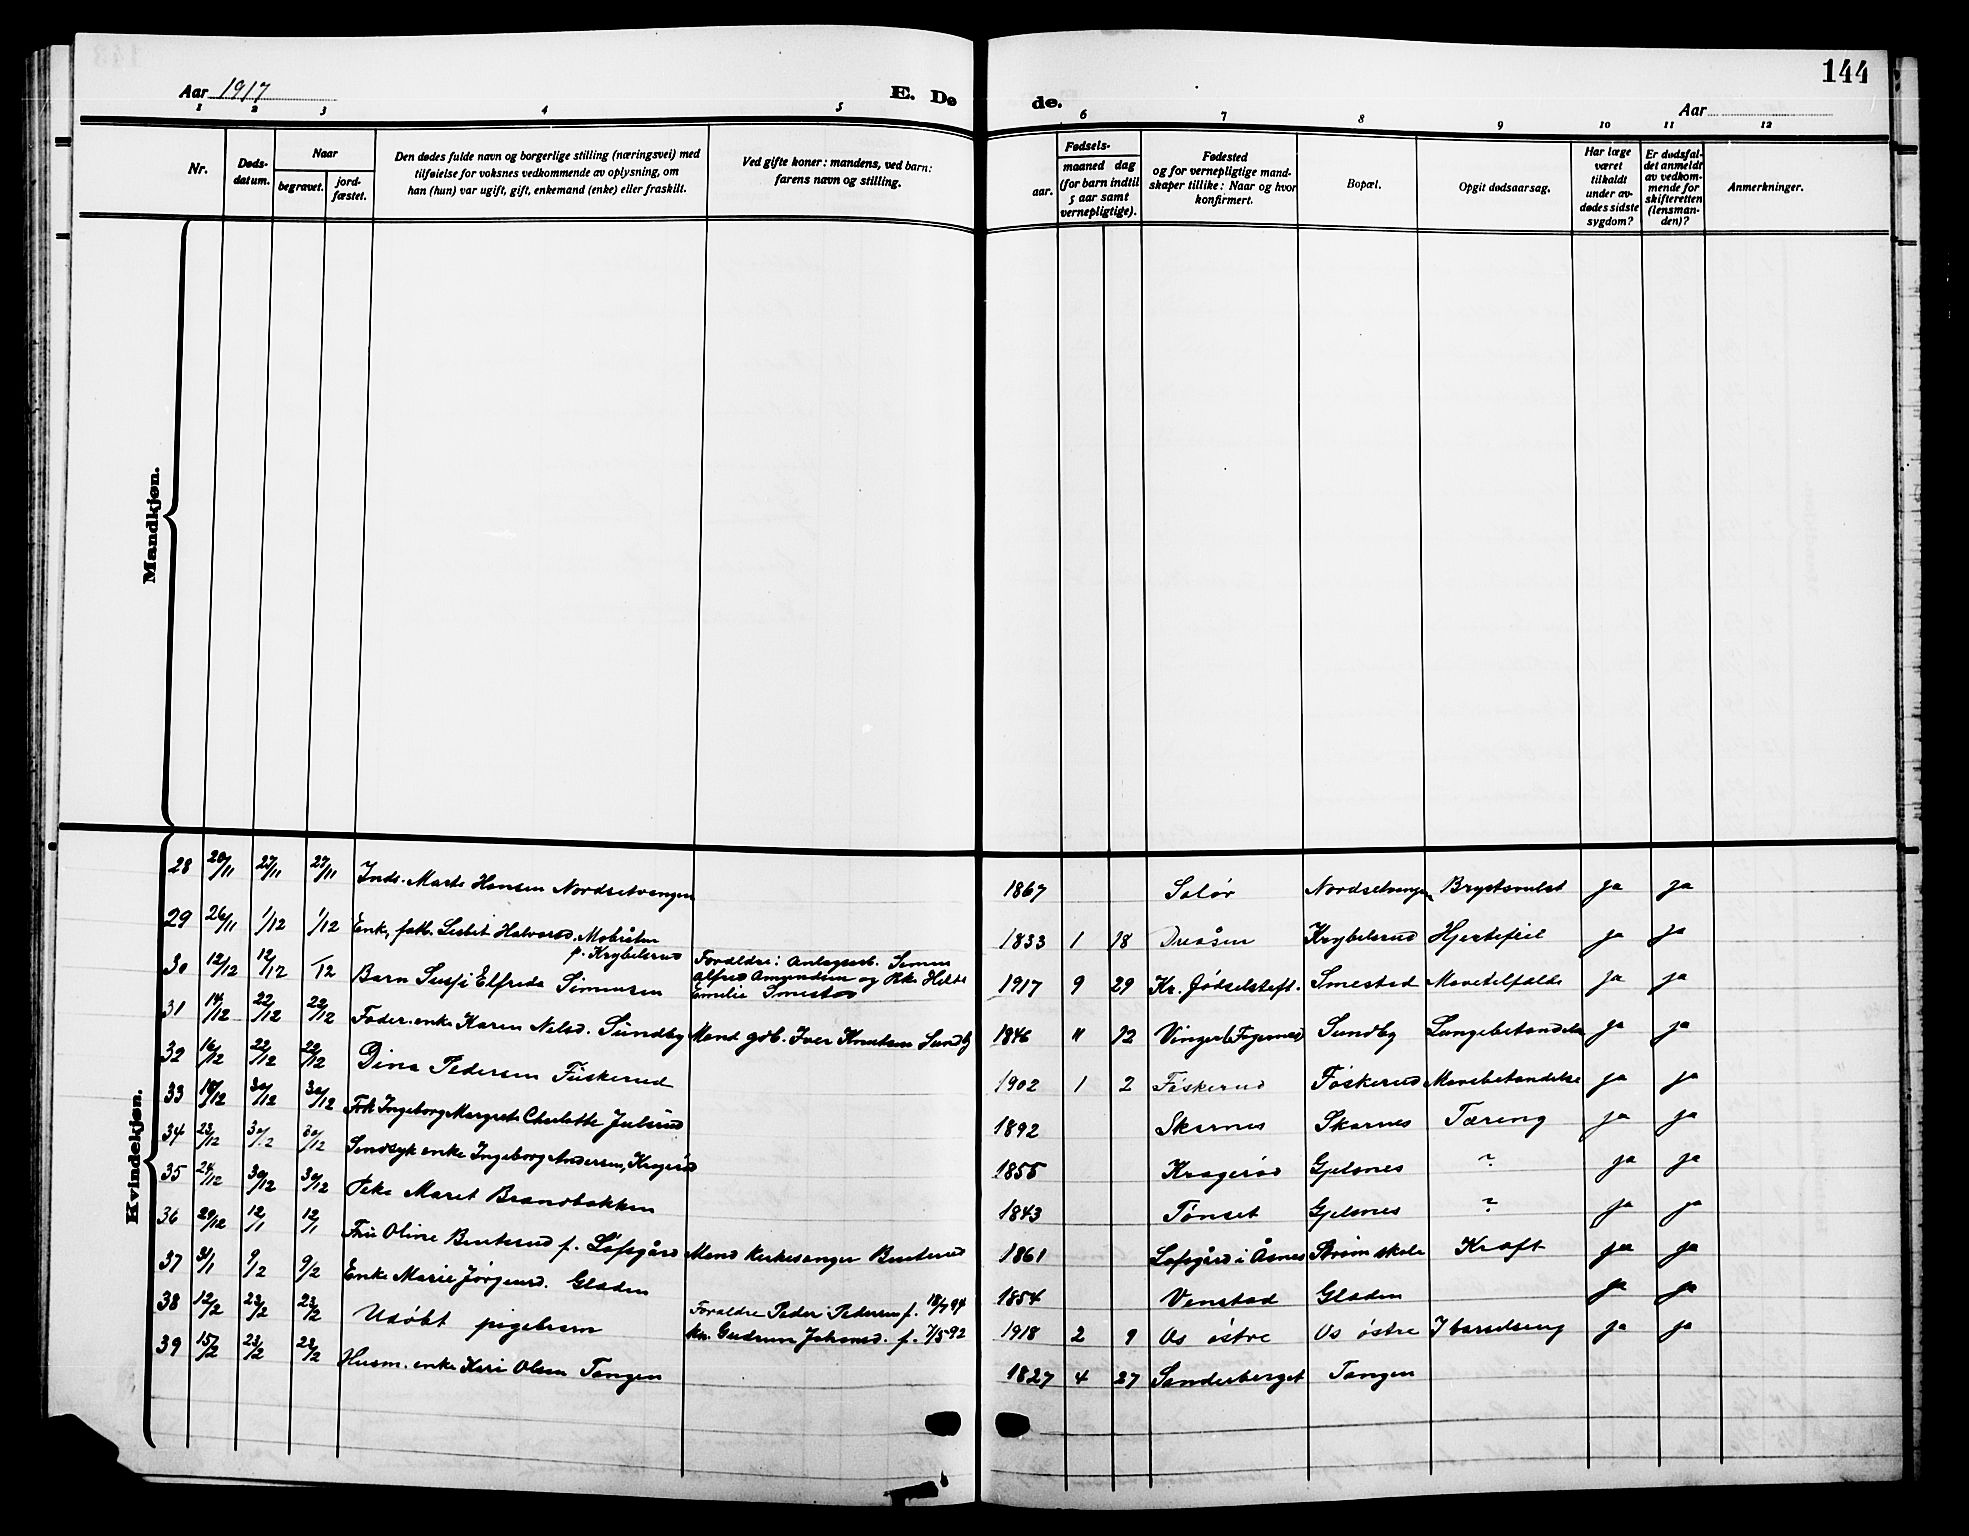 144
Aar 1917
E. Dø
de.
Aar
1 2 3 4 5
6 7 8 9 10 11 12
Nr.
Døds-
datum.
Naar
begravet.
jord-
fæstet.
Den dødes fulde navn og borgerlige stilling (næringsvei) med
tilføielse for voksnes vedkommende av oplysning, om
han (hun) var ugift, gift, enkemand (enke) eller fraskilt.
Ved gifte koner: mandens, ved barn:
farens navn og stilling.
Fødsels-
aar.
maaned dag
(for barn indtil
5 aar samt
vernepligtige).
Fødested
og for vernepligtige mand-
skaper tillike: Naar og hvor
konfirmert.
Bopæl.
Opgit dødsaarsag.
Har læge
været
tilkaldt
under av-
dødes sidste
sygdom?
Er dødsfal-
det anmeldt
av vedkom-
mende for
skifteretten
(lensman-
den)?
Anmerkninger.
Mandkjøn.
Kvindekjøn.
28 20/11 27/11 27/11 Inds. Marte Hansen Nordsetvangen 1867 Solør Nordsetvangen Brystsvulst ja ja
29 26/11 1/12 1/12 Enke, fatt. Lisbet Halvorsd. Mobråten
f. Krybelsrud 1833 1 18 Krybelsrud Hjertefeil ja ja
30 12/12 12/12 /12 Barn Elfreda Simensen Forældre: Anlegsarb. Simen
Alfred Amundsen og Pike Hilda
Emilie Smestad 1917 9 29 Kr. fødselsstift. Smestad Mavetilfælde ja ja
31 14/12 22/12 22/12 Føder. enke Karen Nilsd. Sundby Mand gdb. Iver Knutsen Sundby 1846 " 12 Vinger Sundby Lungebetændelse ja ja
32 16/12 22/12 22/12 Dina Pedersen Fuskerud 1902 1 2 Føskerud Føskerud Mavebetændelse ja ja
33 18/12 30/12 30/12 Frk Ingeborg Margrete Charlotte Julsrud 1892 Skarnes Skarnes Tæring ja ja
34 23/12 30/12 30/12 Sindsyk enke Ingeborg Andersen, Kragerød 1855 Kragerød Gjelsnes ? ja ja
35 24/12 30/12 30/12 Pike Maret Brandbakken 1843 Tønset Gjelsnes ? ja ja
36 29/12 12/1 12/1 Fru Oline Benterud f. Løfsgård Mand Kirkesanger Benterud 1861 Løfsgård i Åsnes Strøm skole Kræft ja ja
37 31/1 9/2 9/2 Enke Marie Jørgensd. Gladen 1854 Venstad Gladen ja ja
38 12/2 23/2 23/2 Udøbt pigebarn Forældre Peder Pedersen f. 18/7 94
ku. Gudrun Johansd. f. 7/5 92 1918 2 9 Os østre Os østre I barselseng ja ja
39 15/2 23/2 23/2 Husm. enke Kari Olsen Tangen 1827 4 27 Sanderberget Tangen